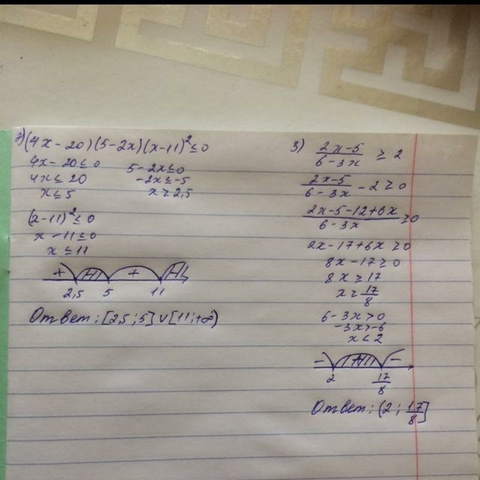 2) (4x-20)(5-2x)(x-11)² ≤ 0
4x-20 ≤ 0
4x ≤ 20
x ≤ 5
5-2x ≤ 0
-2x ≤ -5
x ≥ 2,5
(x-11)² ≤ 0
x-11 ≤ 0
x ≤ 11
+ + 
2,5 5 11
Ответ: [2,5; 5] ∪ [11; +∞)
3) (2x-5)/(6-3x) ≥ 2
(2x-5)/(6-3x) - 2 ≥ 0
(2x-5-12+6x)/(6-3x) ≥ 0
2x-17+6x ≥ 0
8x-17 ≥ 0
8x ≥ 17
x ≥ 17/8
6-3x > 0
-3x > -6
x < 2
- + -
2 17/8
Ответ: (2; 17/8]